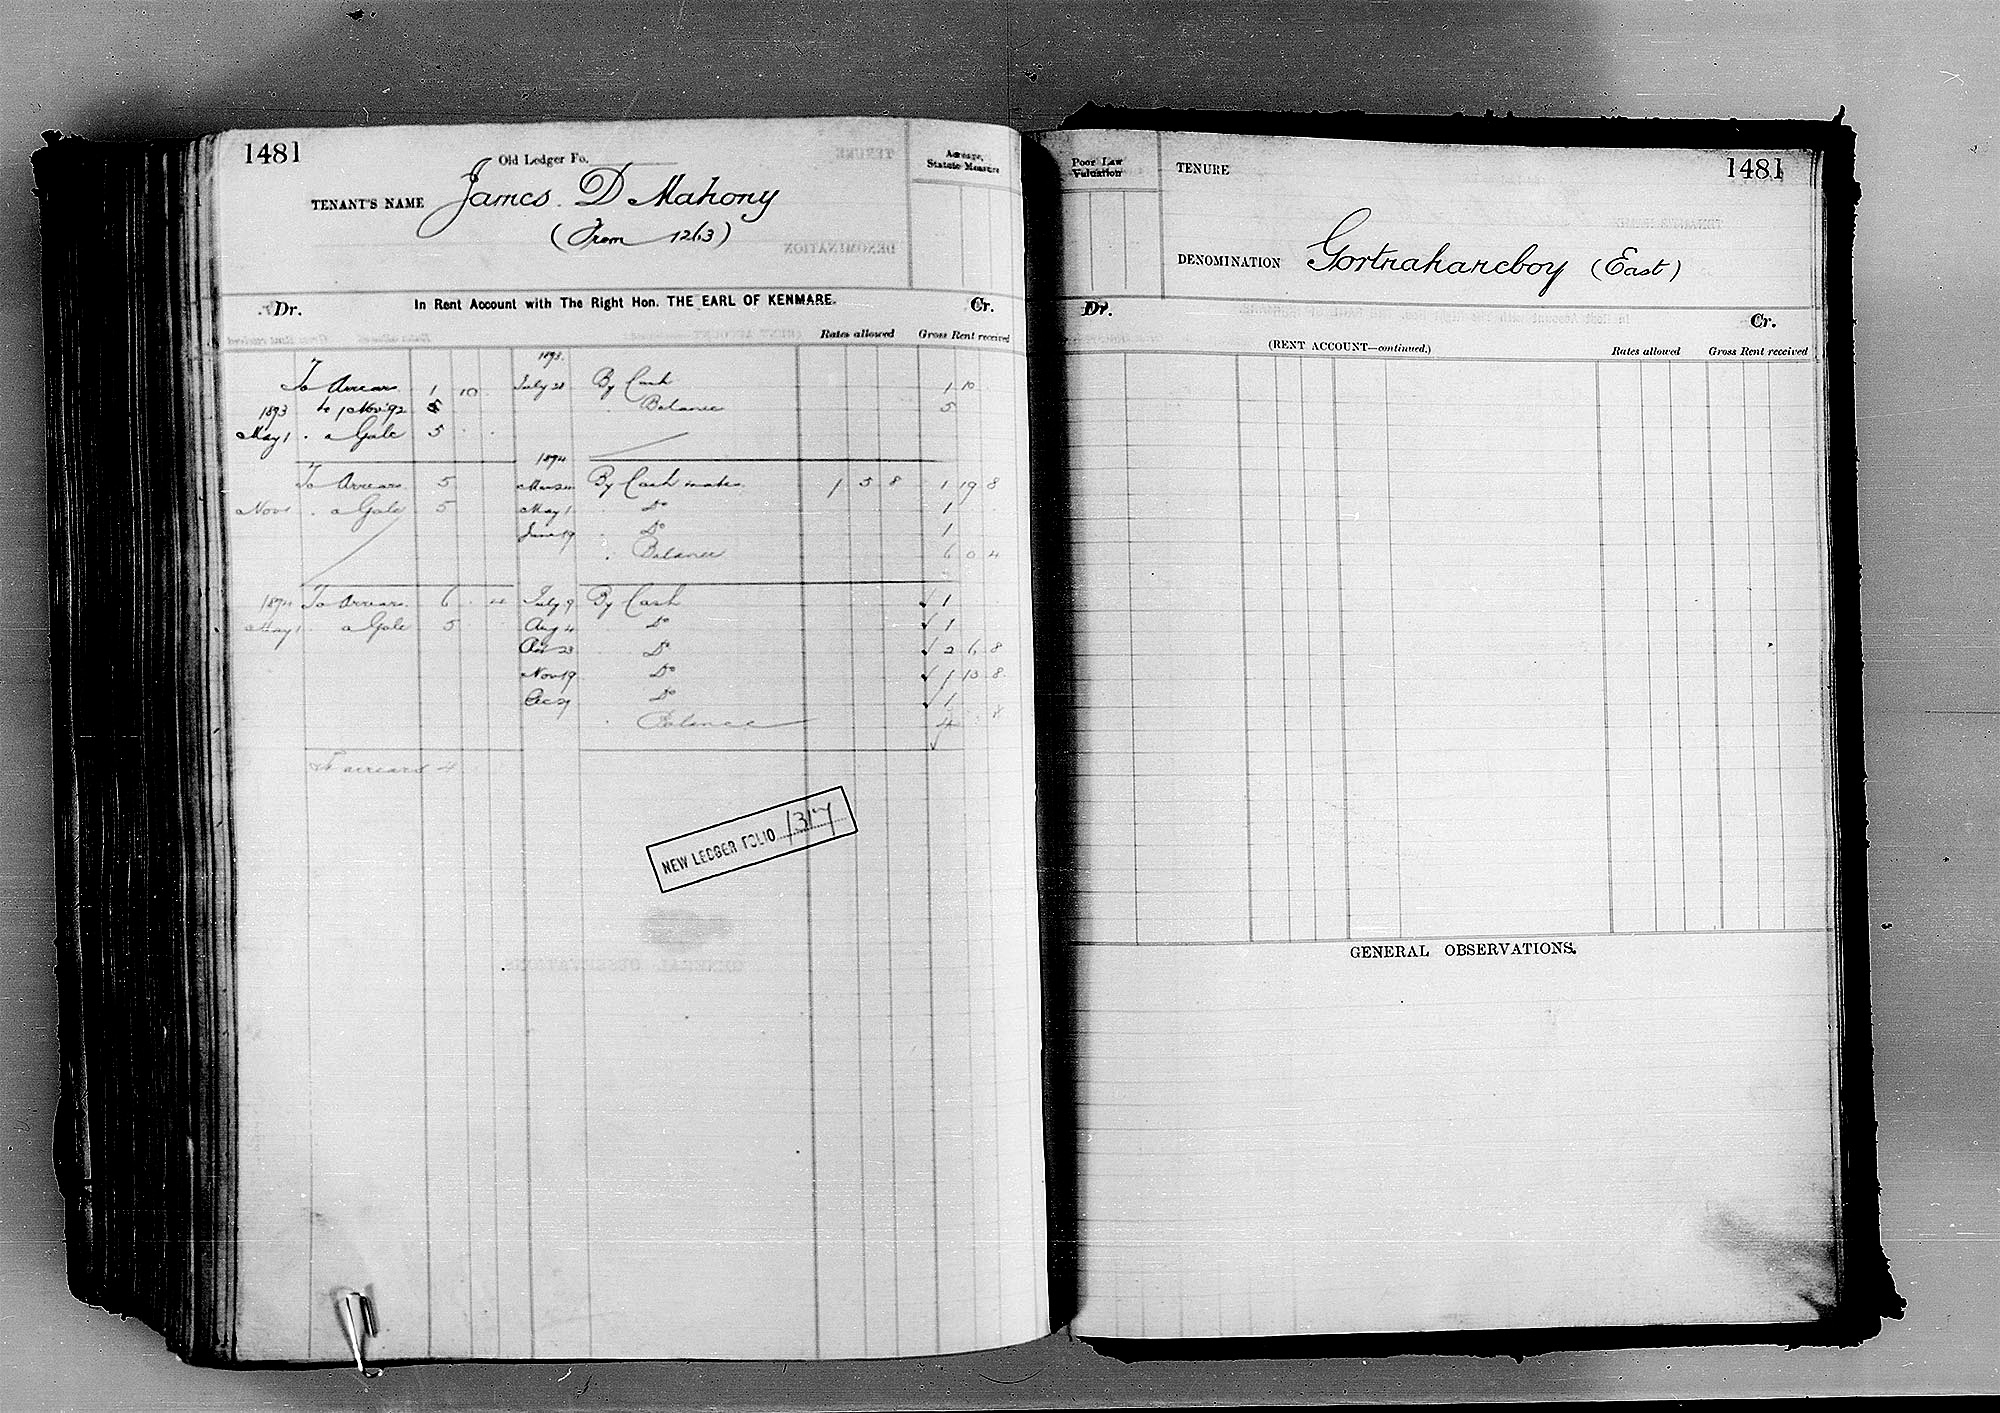 1481
Old Ledger Fo.
Acreage, Statute Measure
TENANT'S NAME James D Mahony
(From 1263)
In Rent Account with The Right Hon. THE EARL OF KENMARE.
Dr. Cr.
Rates allowed Gross Rent received
1893.
To Arrears 1 10 July 28 By Cash 1 10
1893 to 1 Nov '92 5 Balance 5
May 1 a Gale 5
1894
To Arrears 5 By Cash 1 5 8 1 19 8
Nov 1 a Gale 5 May 1 Do 1
June 19 Do 1
Balance 6 0 4
1894 To Arrears 6 4 July 9 By Cash 1
May 1 a Gale 5 Aug 4 Do 1
Oct 23 Do 2 6 8
Nov 19 Do 1 13 8
Do 1
Balance 4
To arrears 4
NEW LEDGER FOLIO 1317
Poor Law Valuation
TENURE
1481
DENOMINATION Gortnahaneboy (East)
Dr. Cr.
(RENT ACCOUNT—continued.)
Rates allowed Gross Rent received
GENERAL OBSERVATIONS.